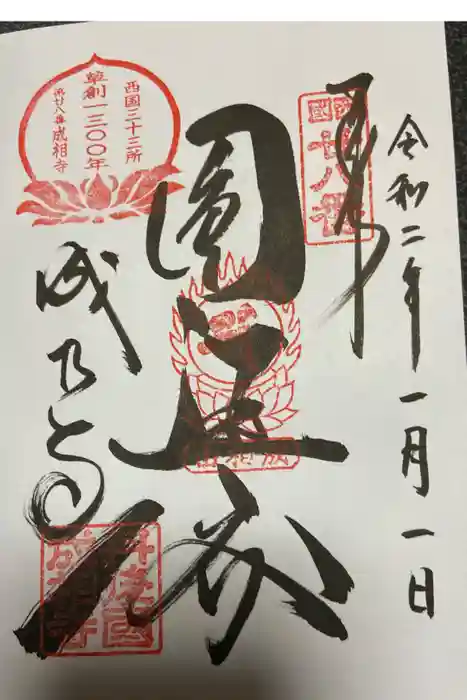 令和二年一月一日
奉拝
西國
廿八番
圓通閣
成相寺
西国三十三所
草創一三〇〇年
第廿八番成相寺